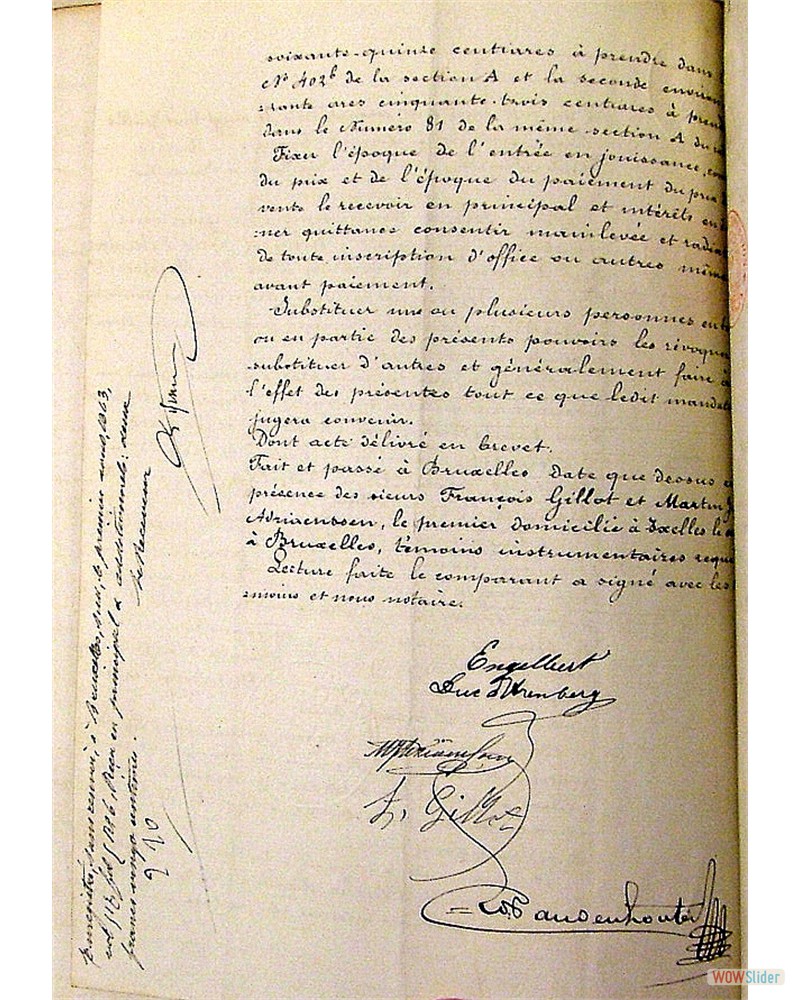 soixante-quinze centiares à prendre dans
Nº 402b de la section A et la seconde environ
-rante ares cinquante-trois centiares à pren
dans le Numéro 81 de la même section A du
Fixer l'époque de l'entrée en jouissance,
du prix et de l'époque du paiement du prix
vente le recevoir en principal et intérêts en
ner quittance consentir mainlevée et radia
de toute inscription d'office ou autres même
avant paiement.
Substituer une ou plusieurs personnes en
ou en partie des présents pouvoirs les révoquer
substituer d'autres et généralement faire à
l'effet des présentes tout ce que ledit mandat
jugera convenir.
Dont acte délivré en brevet.
Fait et passé à Bruxelles date que dessus
présence des sieurs François Gillot et Martin
Adriaenssen, le premier domicilié à Ixelles le
à Bruxelles, témoins instrumentaires requ
Lecture faite le comparant a signé avec les
-moins et nous notaire.
Engelbert
Duc d'Arenberg
F. Gillot
Vandenhouten
Enregistré, sans renvoi, à Bruxelles, sud, le premier août 1863,
vol 117 fol Reçu en principal & additionnels: deux
francs vingt centimes.
Le Receveur
2 20
WOWSlider